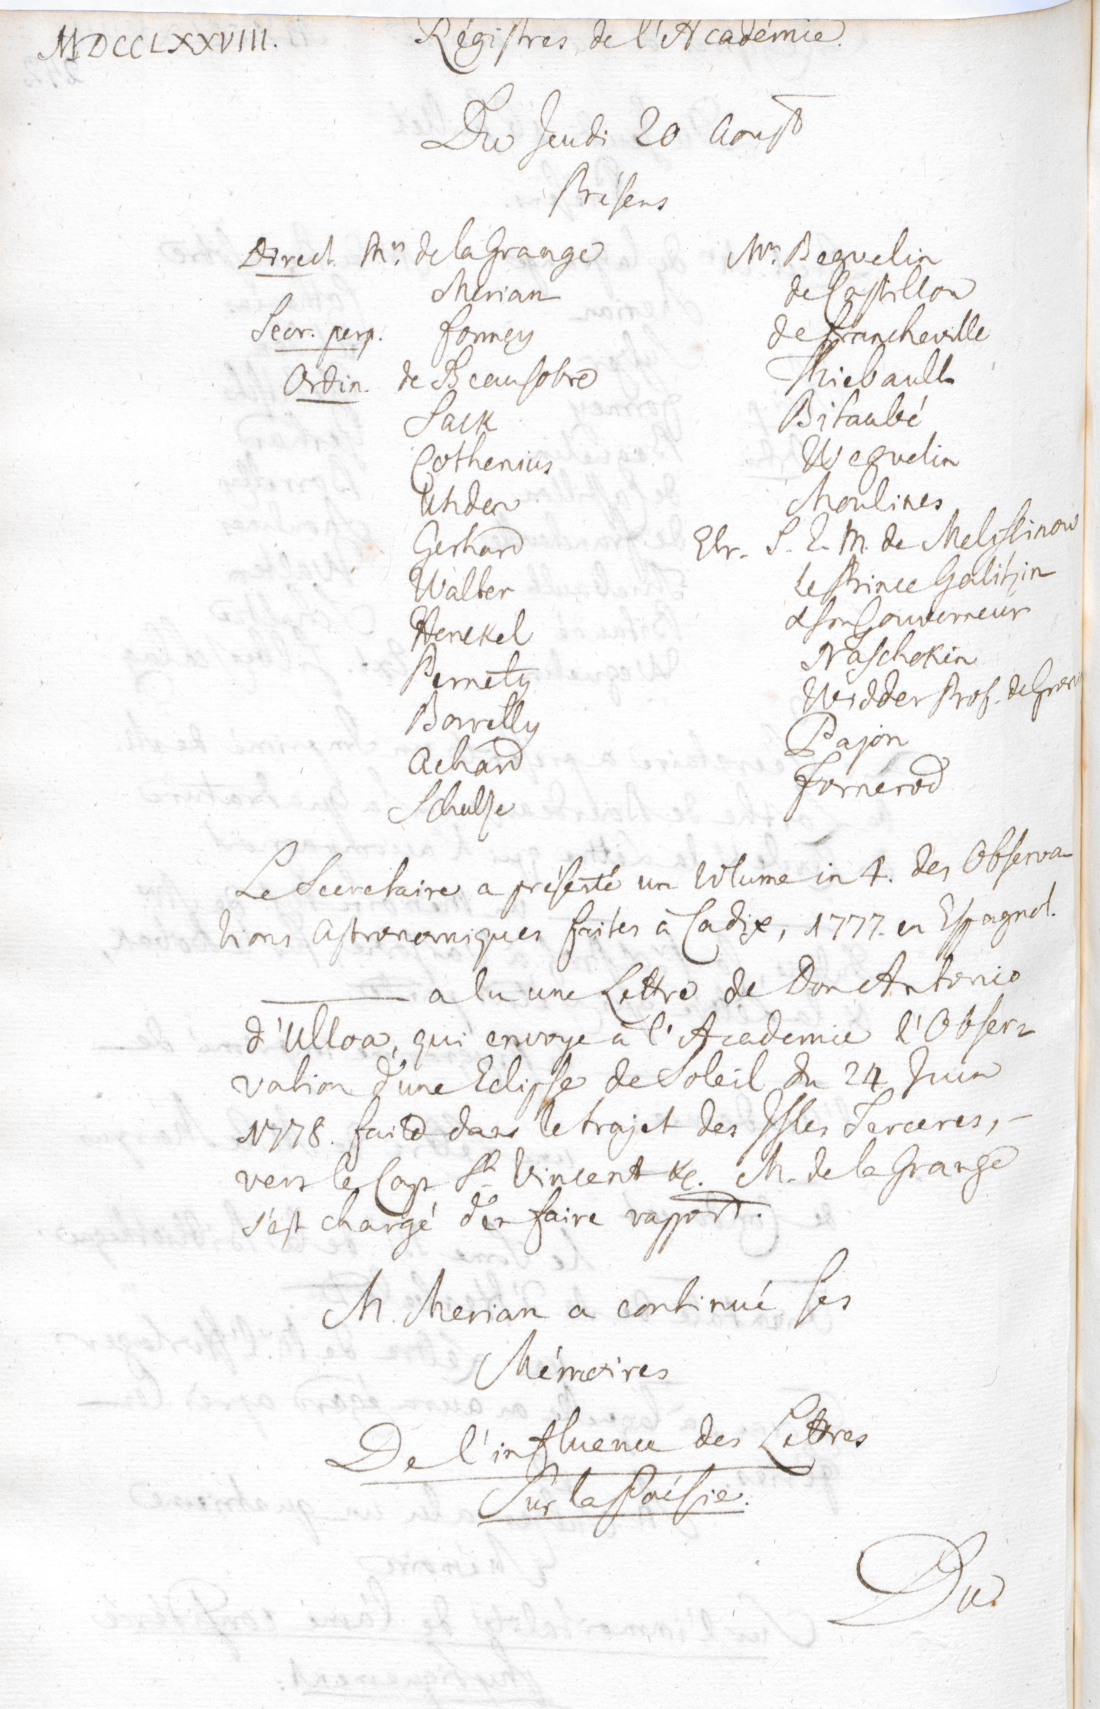 MDCCLXXVIII.
Régistres de l'Académie.
Du Jeudi 20 Aoust
Présens
Direct. Mrs. de la Grange
Merian
Secr. perp. Formey
Ordin. de Beausobre
Sack
Cothenius
Uhden
Gerhard
Walter
Henckel
Pernety
Borrelly
Achard
Schulze
Mrs. Beguelin
de Castillon
de Francheville
Thiebault
Bitaubé
Weguelin
Moulines
Etr. S. E. M. de Melissinow
le Prince Galitzin
& son Gouverneur
Naschokin
Widder Prof. de
Pajon
Fornerod
Le Secretaire a présenté un Volume in 4. des Observa-
tions Astronomiques faites à Cadix, 1777. en Espagnol.
——— a lu une Lettre de Don Antonio
d'Ulloa, qui envoye à l'Academie l'Obser-
vation d'une Eclipse de Soleil du 24 Juin
1778. faite dans le trajet des Isles Terceres, -
vers le Cap St. Vincent &c. M. de la Grange
s'est chargé d'en faire rapport.
M. Merian a continué ses
Mémoires
De l'influence des Lettres
Sur la Poésie.
Du